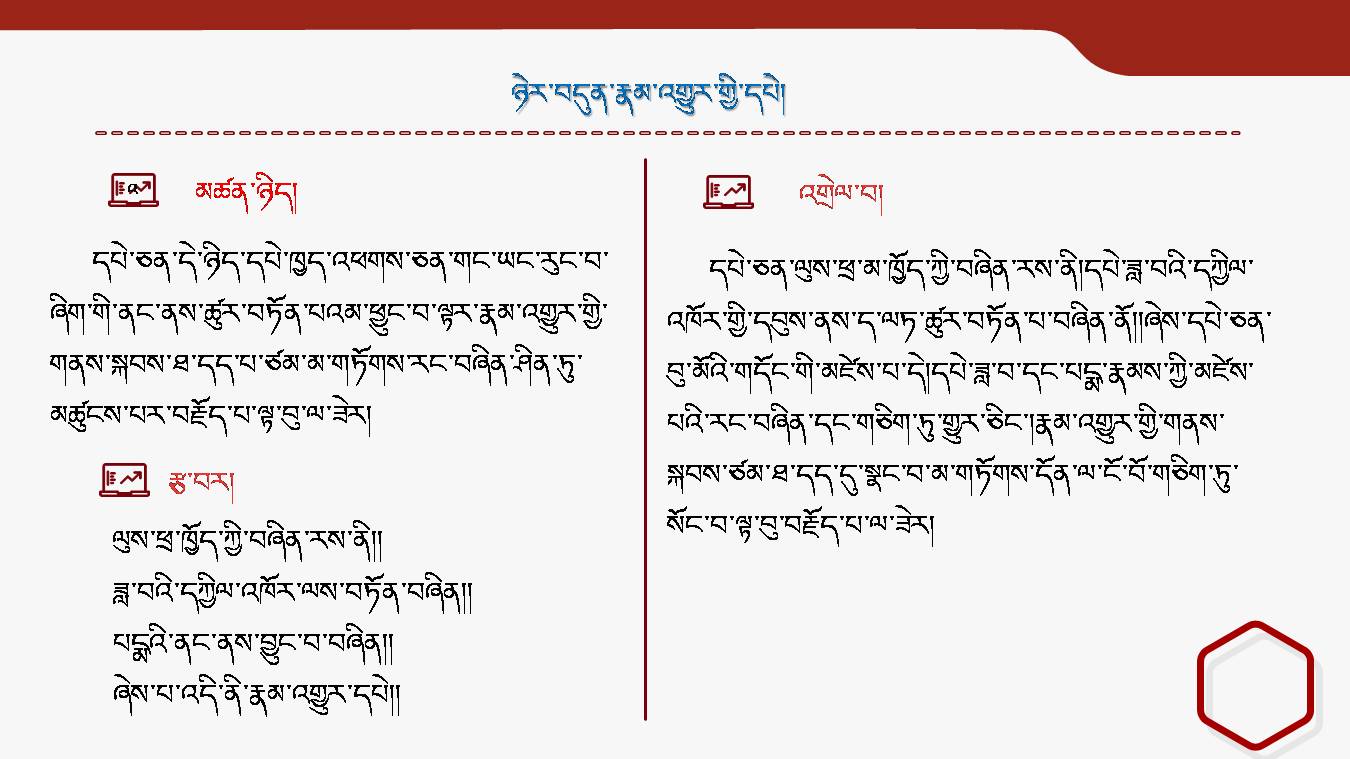 ཉེར་བདུན་རྣམ་འགྱུར་གྱི་དཔེ།
མཚན་ཉིད།
དཔེ་ཅན་དེ་ཉིད་དཔེ་ཁྱད་འཕགས་ཅན་གང་ཡང་རུང་བ་
ཞིག་གི་ནང་ནས་ཚུར་བཏོན་པའམ་ཕྱུང་བ་ལྟར་རྣམ་འགྱུར་གྱི་
གནས་སྐབས་ཐ་དད་པ་ཙམ་མ་གཏོགས་རང་བཞིན་ཤིན་ཏུ་
མཚུངས་པར་བརྗོད་པ་ལྟ་བུ་ལ་ཟེར།
རྩ་བར།
ལུས་ཕྲ་ཁྱོད་ཀྱི་བཞིན་རས་ནི།།
ཟླ་བའི་དཀྱིལ་འཁོར་ལས་བཏོན་བཞིན།།
པདྨའི་ནང་ནས་བྱུང་བ་བཞིན།།
ཞེས་པ་འདི་ནི་རྣམ་འགྱུར་དཔེ།།
འགྲེལ་བ།
དཔེ་ཅན་ལུས་ཕྲ་མ་ཁྱོད་ཀྱི་བཞིན་རས་ནི།དཔེ་ཟླ་བའི་དཀྱིལ་
འཁོར་གྱི་དབུས་ནས་ད་ལཏ་ཚུར་བཏོན་པ་བཞིན་ནོ།།ཞེས་དཔེ་ཅན་
བུ་མོའི་གདོང་གི་མཛེས་པ་དེ།དཔེ་ཟླ་བ་དང་པདྨ་རྣམས་ཀྱི་མཛེས་
པའི་རང་བཞིན་དང་གཅིག་ཏུ་གྱུར་ཅིང་།རྣམ་འགྱུར་གྱི་གནས་
སྐབས་ཙམ་ཐ་དད་དུ་སྣང་བ་མ་གཏོགས་དོན་ལ་ངོ་བོ་གཅིག་ཏུ་
སོང་བ་ལྟ་བུ་བརྗོད་པ་ལ་ཟེར།